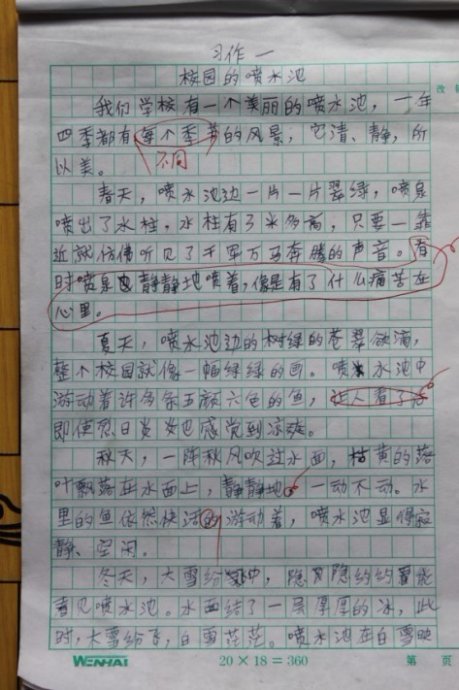 习作一
校园的喷水池
我们学校有一个美丽的喷水池，一年
四季都有每个季节的风景，它清、静，所
不同
以美。
春天，喷水池边一片一片翠绿，喷泉
喷出了水柱，水柱有3米多高，只要一靠
近就仿佛听见了千军万马奔腾的声音。有
时喷泉也静静地喷着，像是有了什么痛苦在
心里。
夏天，喷水池边的树绿的苍翠欲滴，
整个校园就像一幅绿绿的画。喷水池中
游动着许多条五颜六色的鱼，让人看了
即使烈日炎炎也感觉到凉爽。
秋天，一阵秋风吹过水面，枯黄的落
叶飘落在水面上，静静地，一动不动。水
里的鱼依然快活的游动着，喷水池显得寂
静、空闲。
冬天，大雪纷中，隐隐约约能
看见喷水池。水面结了一层厚厚的冰，此
时，大雪纷飞，白雪茫茫。喷水池在白雪映
WENHAI
20×18=360
第 页